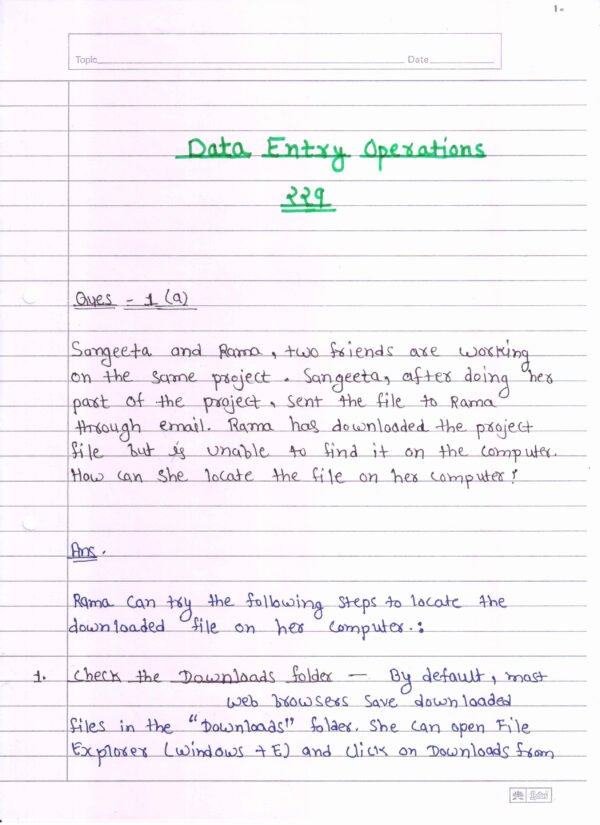 1.
Topic Date
Data Entry Operations
229
Ques - 1 (a)
Sangeeta and Rama, two friends are working
on the same project. Sangeeta, after doing her
part of the project, sent the file to Rama
through email. Rama has downloaded the project
file but is unable to find it on the computer.
How can she locate the file on her computer?
Ans.
Rama can try the following steps to locate the
downloaded file on her computer.:
1. Check the Downloads folder — By default, most
web browsers save downloaded
files in the "Downloads" folder. She can open File
Explorer (Windows + E) and click on Downloads from